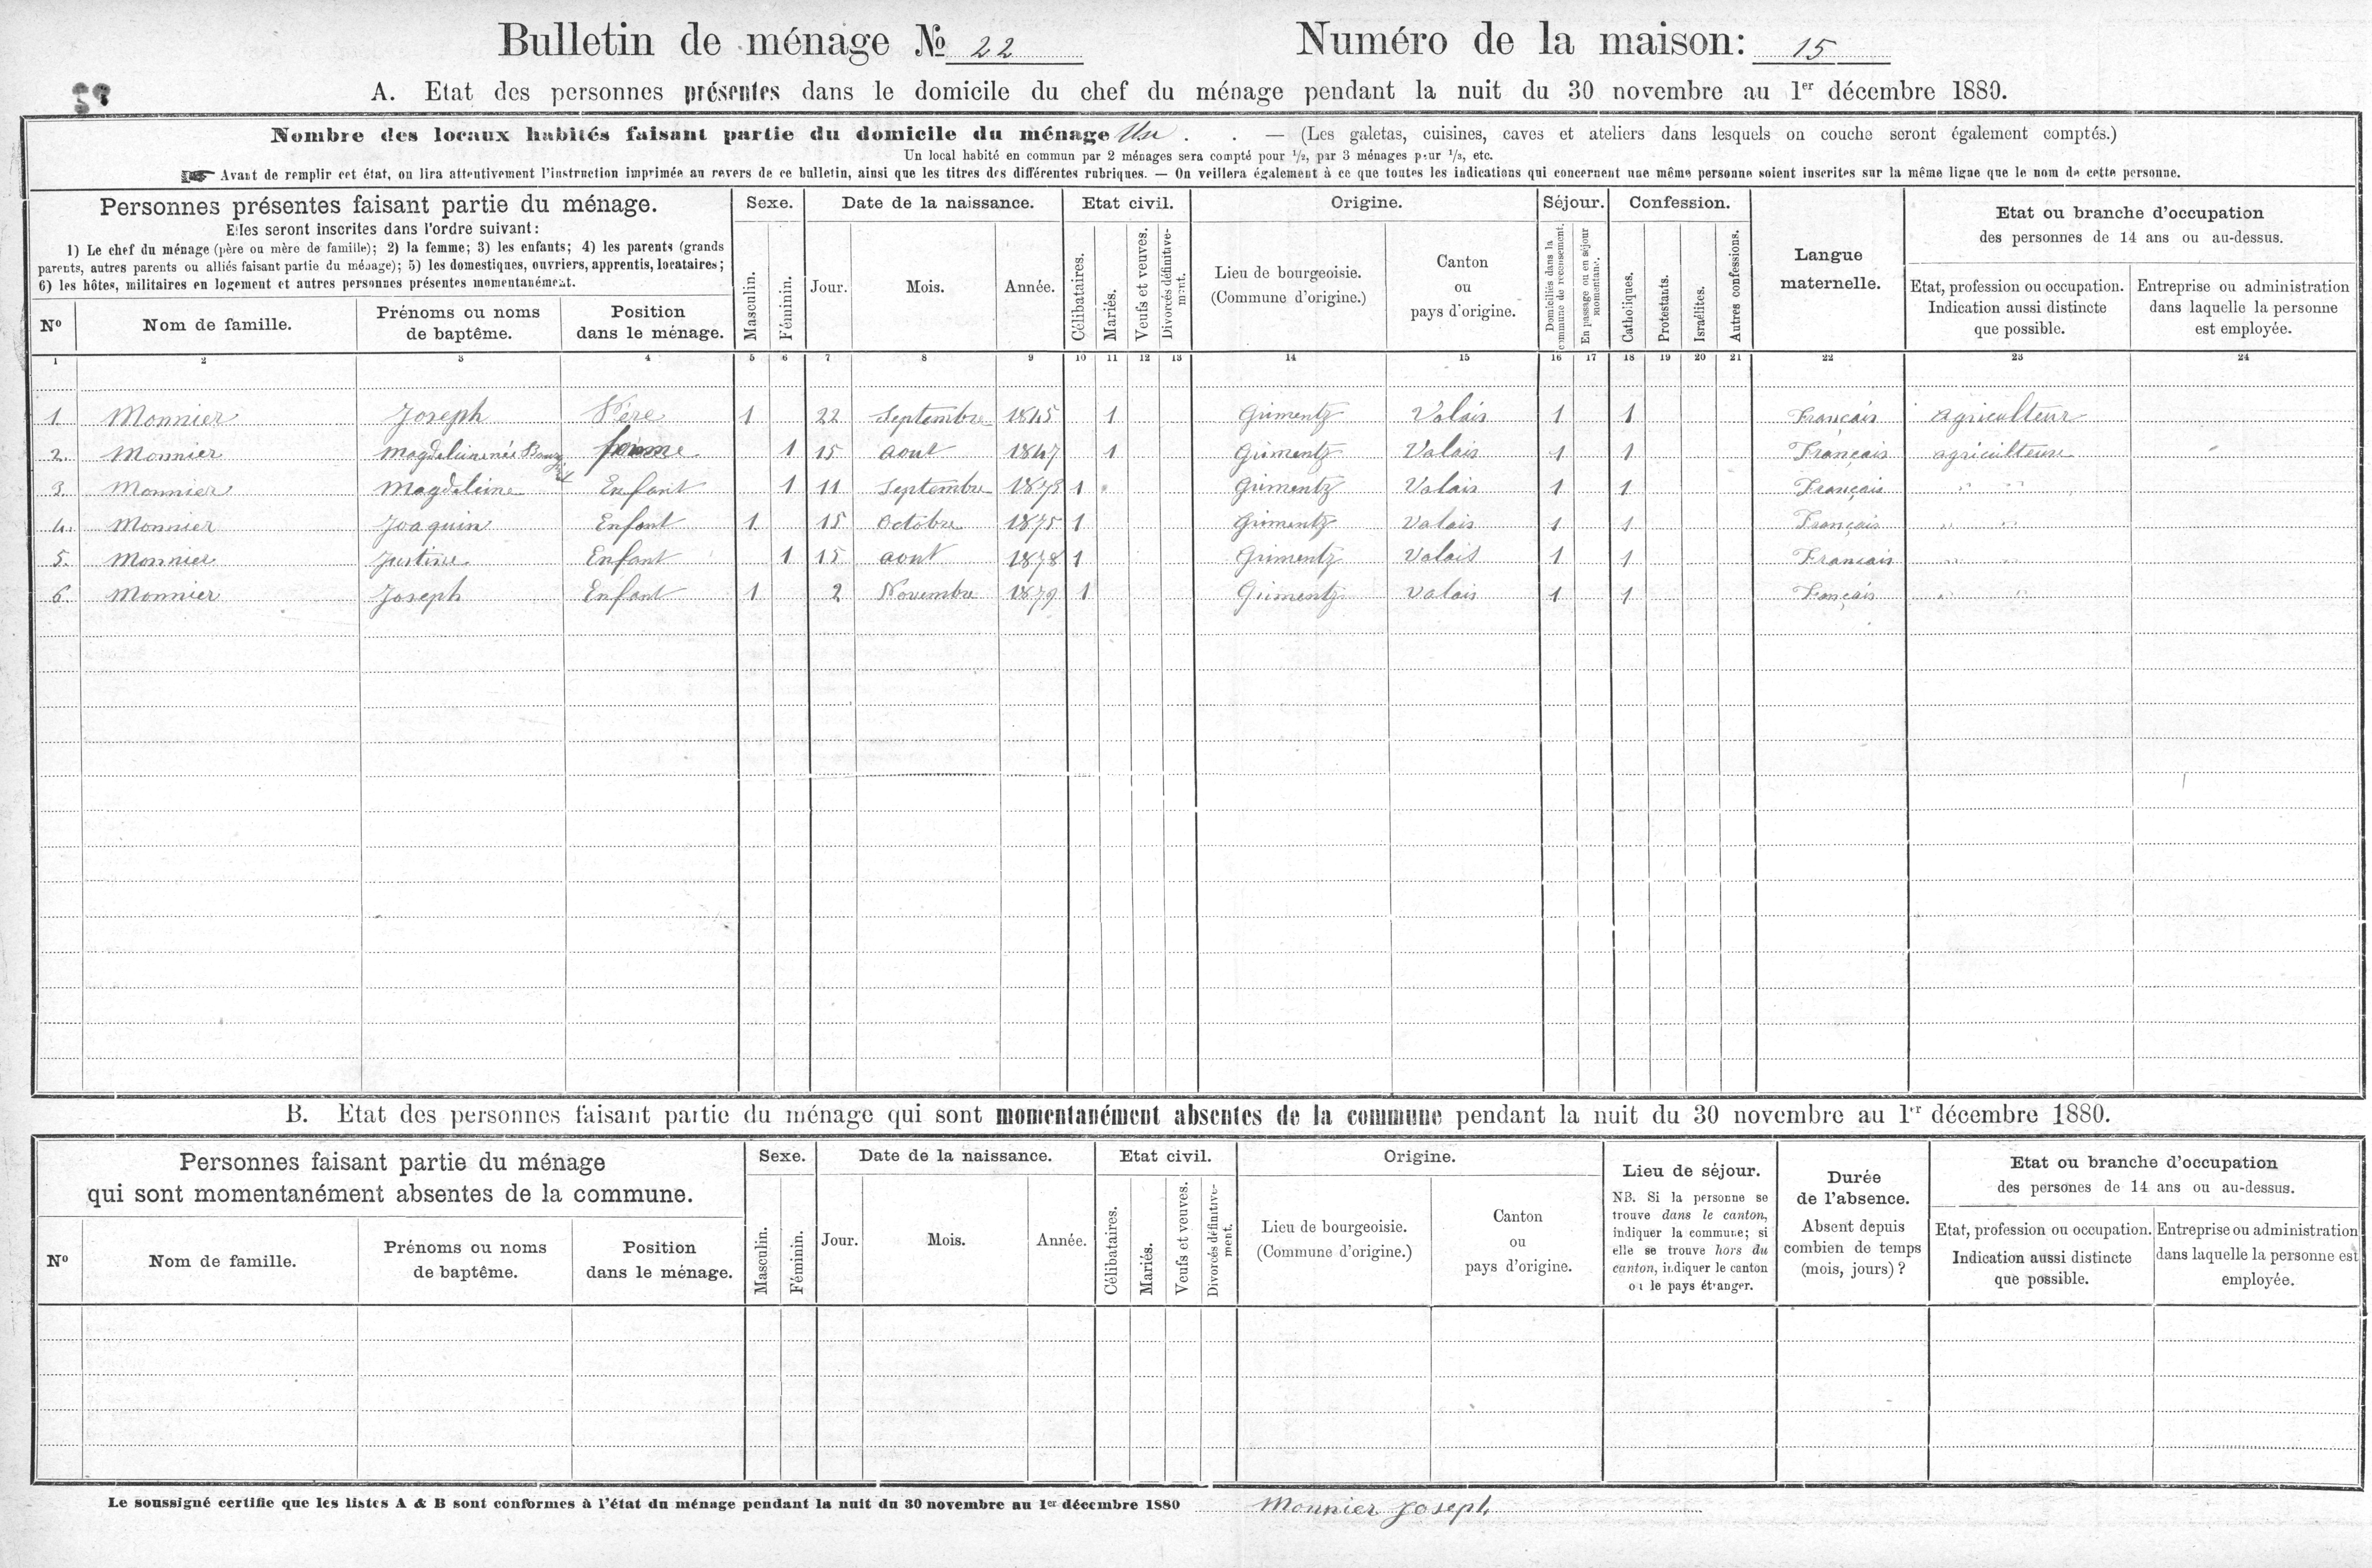 Bulletin de ménage № 22 Numéro de la maison: 15
59
A. Etat des personnes présentes dans le domicile du chef du ménage pendant la nuit du 30 novembre au 1er décembre 1880.
Nombre des locaux habités faisant partie du domicile du ménage Un . . — (Les galetas, cuisines, caves et ateliers dans lesquels on couche seront également comptés.)
Un local habité en commun par 2 ménages sera compté pour 1/2, par 3 ménages pour 1/3, etc.
Avant de remplir cet état, on lira attentivement l'instruction imprimée au revers de ce bulletin, ainsi que les titres des différentes rubriques. — On veillera également à ce que toutes les indications qui concernent une même personne soient inscrites sur la même ligne que le nom de cette personne.
Personnes présentes faisant partie du ménage.
Elles seront inscrites dans l'ordre suivant:
1) Le chef du ménage (père ou mère de famille); 2) la femme; 3) les enfants; 4) les parents (grands
parents, autres parents ou alliés faisant partie du ménage); 5) les domestiques, ouvriers, apprentis, locataires;
6) les hôtes, militaires en logement et autres personnes présentes momentanément.
No
Nom de famille.
Prénoms ou noms
de baptême.
Position
dans le ménage.
Sexe.
Masculin.
Féminin.
Date de la naissance.
Jour.
Mois.
Année.
Etat civil.
Célibataires.
Mariés.
Veufs et veuves.
Divorcés définitive-
ment.
Origine.
Lieu de bourgeoisie.
(Commune d'origine.)
Canton
ou
pays d'origine.
Séjour.
Domiciliés dans la
commune de recensement.
En passage ou en séjour
momentané.
Confession.
Catholiques.
Protestants.
Israélites.
Autres confessions.
Langue
maternelle.
Etat ou branche d'occupation
des personnes de 14 ans ou au-dessus.
Etat, profession ou occupation.
Indication aussi distincte
que possible.
Entreprise ou administration
dans laquelle la personne
est employée.
1 2 3 4 5 6 7 8 9 10 11 12 13 14 15 16 17 18 19 20 21 22 23 24
1. Monnier Joseph Père 1 22 Septembre 1845 1 Grimentz Valais 1 1 Français agriculteur
2. Monnier Magdeleine née femme 1 15 aout 1847 1 Grimentz Valais 1 1 Français agriculteur
3. Monnier Magdeleine Enfant 1 11 Septembre 1873 1 Grimentz Valais 1 1 Français " "
4. Monnier Joaquin Enfant 1 15 Octobre 1875 1 Grimentz Valais 1 1 Français " "
5. Monnier Justine Enfant 1 15 aout 1878 1 Grimentz Valais 1 1 Francais " "
6. Monnier Joseph Enfant 1 2 Novembre 1879 1 Grimentz Valais 1 1 Français " "
B. Etat des personnes faisant partie du ménage qui sont momentanément absentes de la commune pendant la nuit du 30 novembre au 1er décembre 1880.
Personnes faisant partie du ménage
qui sont momentanément absentes de la commune.
No
Nom de famille.
Prénoms ou noms
de baptême.
Position
dans le ménage.
Sexe.
Masculin.
Féminin.
Date de la naissance.
Jour.
Mois.
Année.
Etat civil.
Célibataires.
Mariés.
Veufs et veuves.
Divorcés définitive-
ment.
Origine.
Lieu de bourgeoisie.
(Commune d'origine.)
Canton
ou
pays d'origine.
Lieu de séjour.
NB. Si la personne se
trouve dans le canton,
indiquer la commune; si
elle se trouve hors du
canton, indiquer le canton
ou le pays étranger.
Durée
de l'absence.
Absent depuis
combien de temps
(mois, jours)?
Etat ou branche d'occupation
des persones de 14 ans ou au-dessus.
Etat, profession ou occupation.
Indication aussi distincte
que possible.
Entreprise ou administration
dans laquelle la personne est
employée.
Le soussigné certifie que les listes A & B sont conformes à l'état du ménage pendant la nuit du 30 novembre au 1er décembre 1880 Monnier Joseph